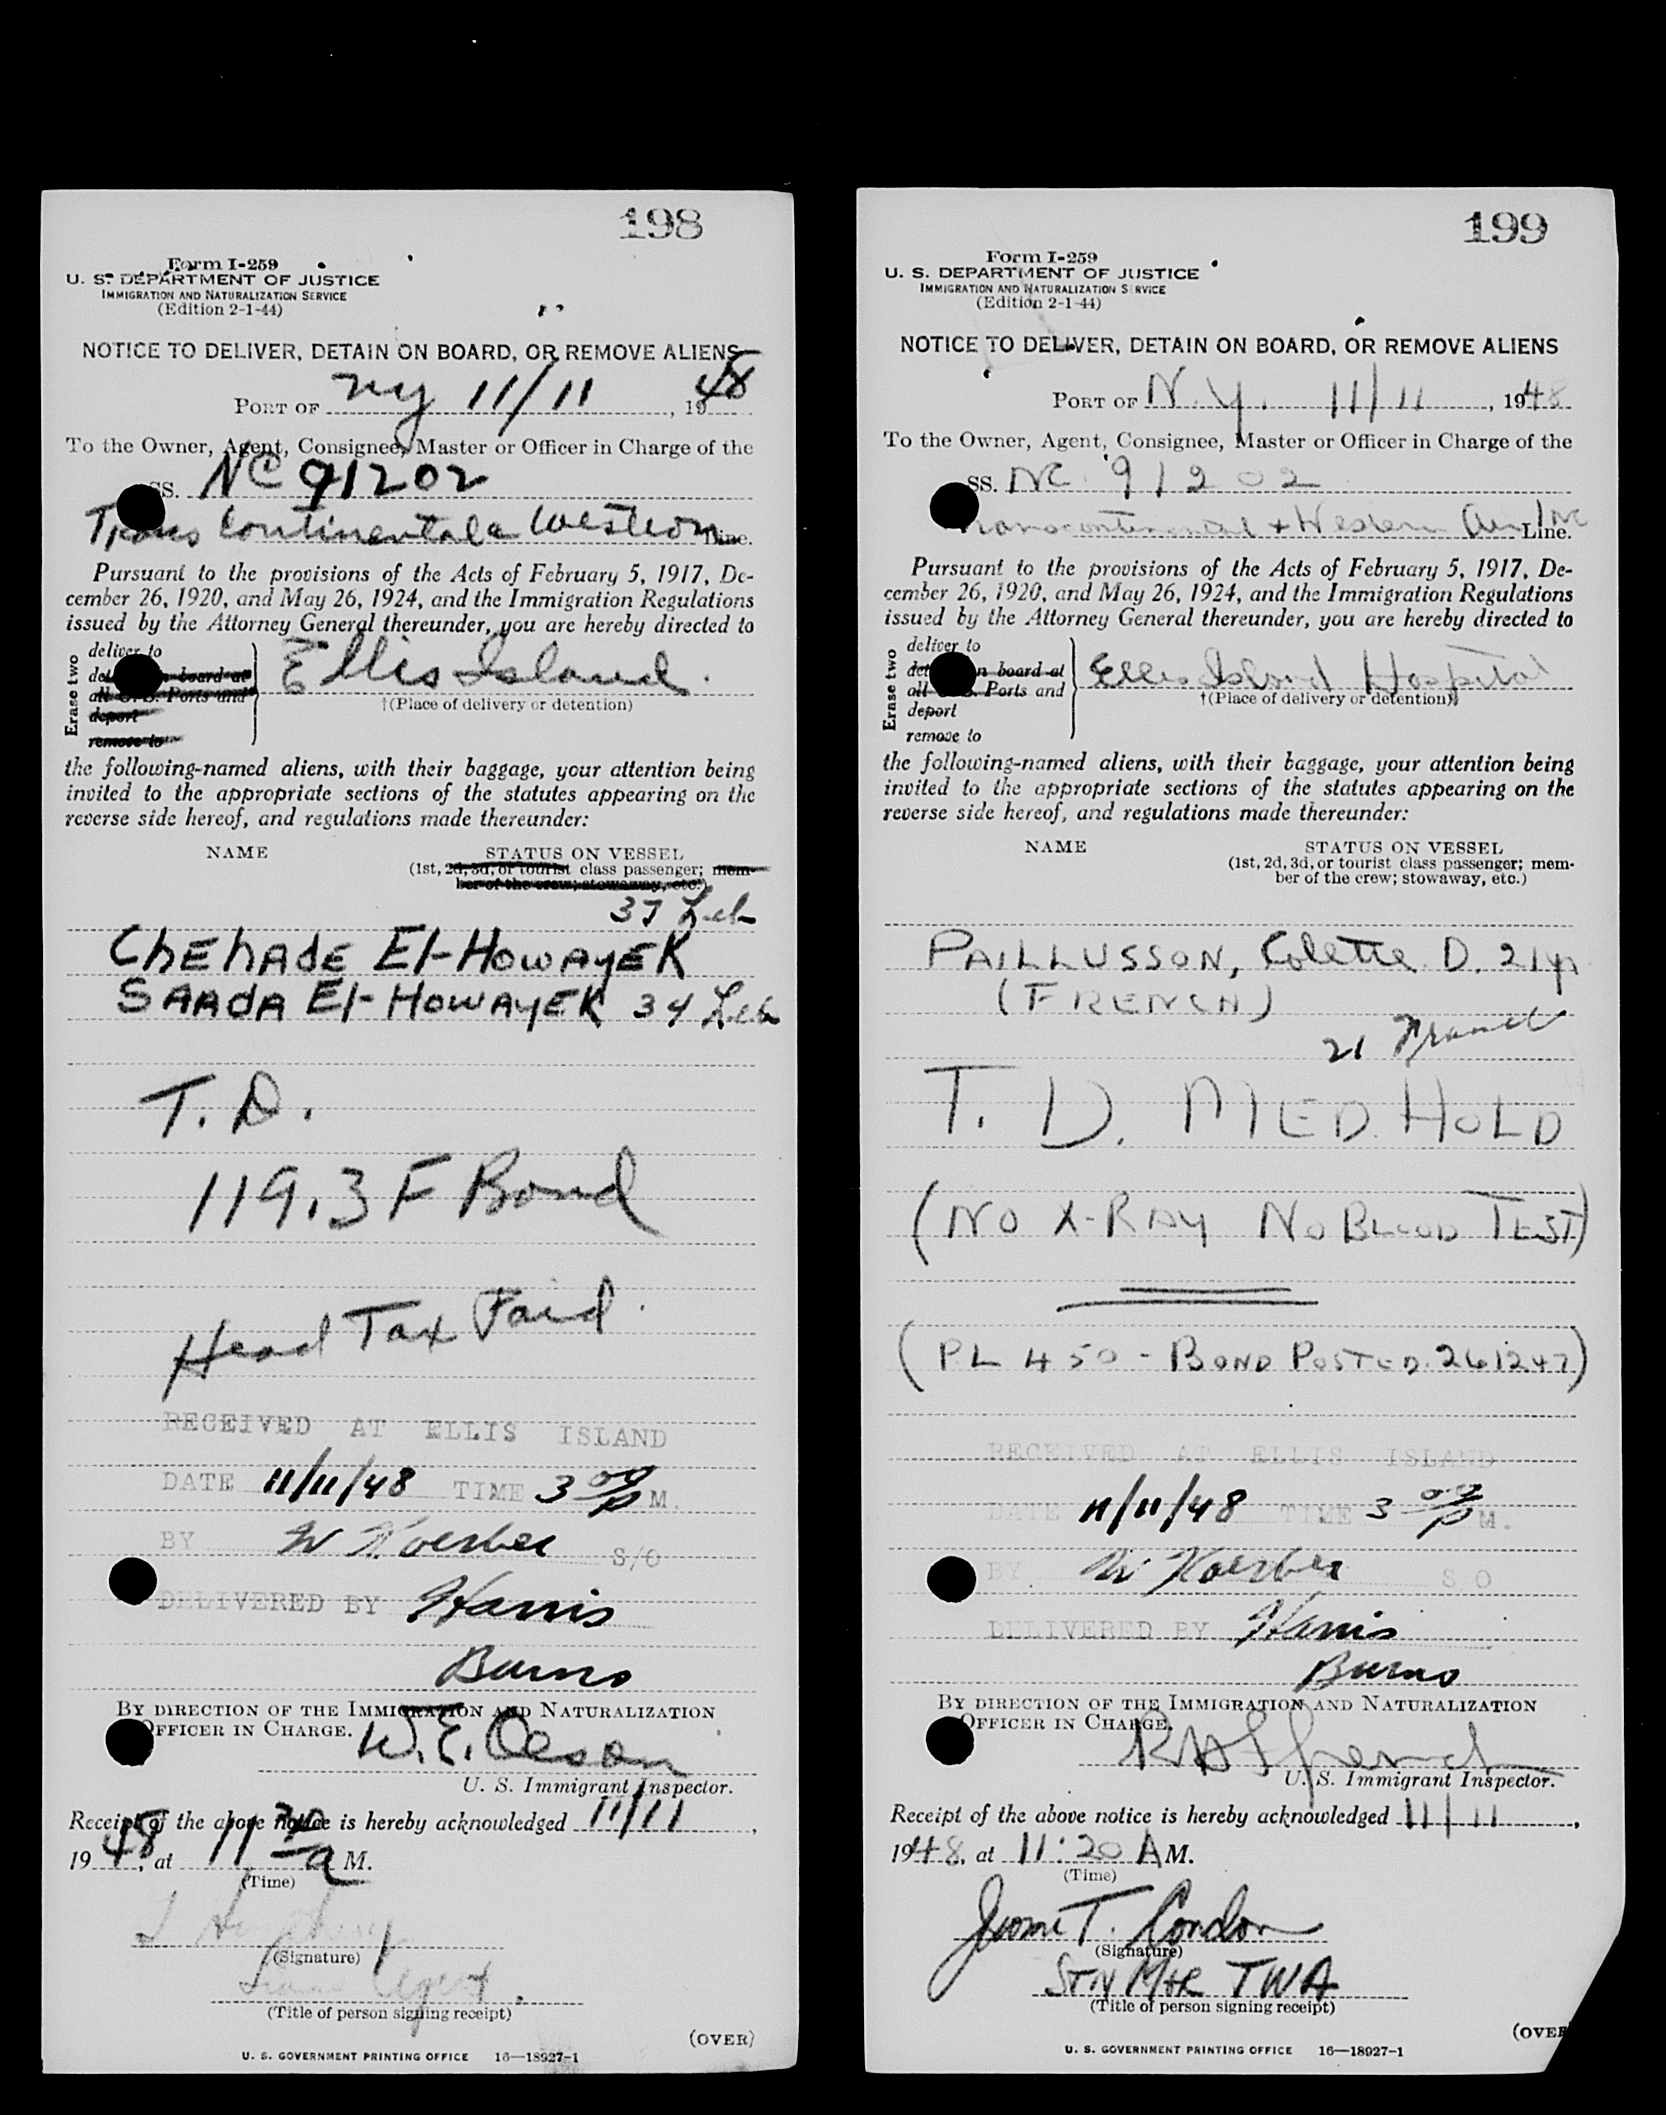 198
Form I-259
U. S. DEPARTMENT OF JUSTICE
IMMIGRATION AND NATURALIZATION SERVICE
(Edition 2-1-44)
NOTICE TO DELIVER, DETAIN ON BOARD, OR REMOVE ALIENS
PORT OF NY 11/11, 1948
To the Owner, Agent, Consignee, Master or Officer in Charge of the
SS. NC 91202
Trans Continental & Western Line.
Pursuant to the provisions of the Acts of February 5, 1917, De-
cember 26, 1920, and May 26, 1924, and the Immigration Regulations
issued by the Attorney General thereunder, you are hereby directed to
Erase two
deliver to
board at
all U. S. Ports and
deport
remove to
Ellis Island.
†(Place of delivery or detention)
the following-named aliens, with their baggage, your attention being
invited to the appropriate sections of the statutes appearing on the
reverse side hereof, and regulations made thereunder:
NAME STATUS ON VESSEL
(1st, 2d, 3d, or tourist class passenger; mem-
ber of the crew; stowaway, etc.)
37 Leb
Chehade El-Howayek
Saada El-Howayek 34 Leb
T. D.
119.3 F Bond
Head Tax Paid.
RECEIVED AT ELLIS ISLAND
DATE 11/11/48 TIME 3 00 P M.
BY W Koerber S/O
DELIVERED BY Harris
Burns
BY DIRECTION OF THE IMMIGRATION AND NATURALIZATION
OFFICER IN CHARGE.
W. E. Oleson
U. S. Immigrant Inspector.
Receipt of the above notice is hereby acknowledged 11/11,
1948, at 11 a M.
(Time)
(Signature)
Agent.
(Title of person signing receipt)
(OVER)
U. S. GOVERNMENT PRINTING OFFICE 16—18927-1
199
Form I-259
U. S. DEPARTMENT OF JUSTICE
IMMIGRATION AND NATURALIZATION SERVICE
(Edition 2-1-44)
NOTICE TO DELIVER, DETAIN ON BOARD, OR REMOVE ALIENS
PORT OF N.Y. 11/11, 1948
To the Owner, Agent, Consignee, Master or Officer in Charge of the
SS. NC 91202
Transcontinental + Western Air Inc Line.
Pursuant to the provisions of the Acts of February 5, 1917, De-
cember 26, 1920, and May 26, 1924, and the Immigration Regulations
issued by the Attorney General thereunder, you are hereby directed to
Erase two
deliver to
board at
all Ports and
deport
remove to
Ellis Island Hospital
†(Place of delivery or detention)
the following-named aliens, with their baggage, your attention being
invited to the appropriate sections of the statutes appearing on the
reverse side hereof, and regulations made thereunder:
NAME STATUS ON VESSEL
(1st, 2d, 3d, or tourist class passenger; mem-
ber of the crew; stowaway, etc.)
PAILLUSSON, Colette D. 21 yr
(FRENCH)
21 France
T. D. MED HOLD
(NO X-RAY NO BLOOD TEST)
(PL 450 - BOND POSTED 261247)
RECEIVED AT ELLIS ISLAND
DATE 11/11/48 TIME 3 00 P M.
BY W Koerber S O
DELIVERED BY Harris
Burns
BY DIRECTION OF THE IMMIGRATION AND NATURALIZATION
OFFICER IN CHARGE.
U. S. Immigrant Inspector.
Receipt of the above notice is hereby acknowledged 11/11,
1948, at 11:20 A M.
(Time)
Jerome T. Condon
(Signature)
STN MGR TWA
(Title of person signing receipt)
(OVER
U. S. GOVERNMENT PRINTING OFFICE 16—18927-1